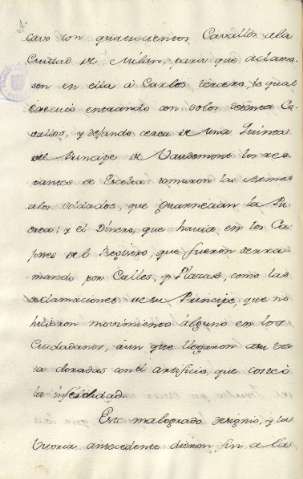 tavo con quatrocientos Cavallos a la
Ciudad de Milan, para que aclama-
sen en ella á Carlos tercero, lo qual
executó entrando con solos treinta Ca-
vallos, y dejando cerca de una Quinta
del Principe de Vaudemont los res-
tantes de Escolta tomaron las Armas
á los soldados, que guarnecian la Pu-
erta; y el Dinero, que havia en los Ca-
jones de el Registro, que fueron derra-
mando por Calles, y Plazas, como las
aclamaciones de su Principe, que no
hicieron movimiento alguno en los
Ciudadanos, aun que llegaron
doradas con el artificio, que conocio
la infidelidad.
Este malogrado designio, y la
Victoria antecedente dieron fin a la